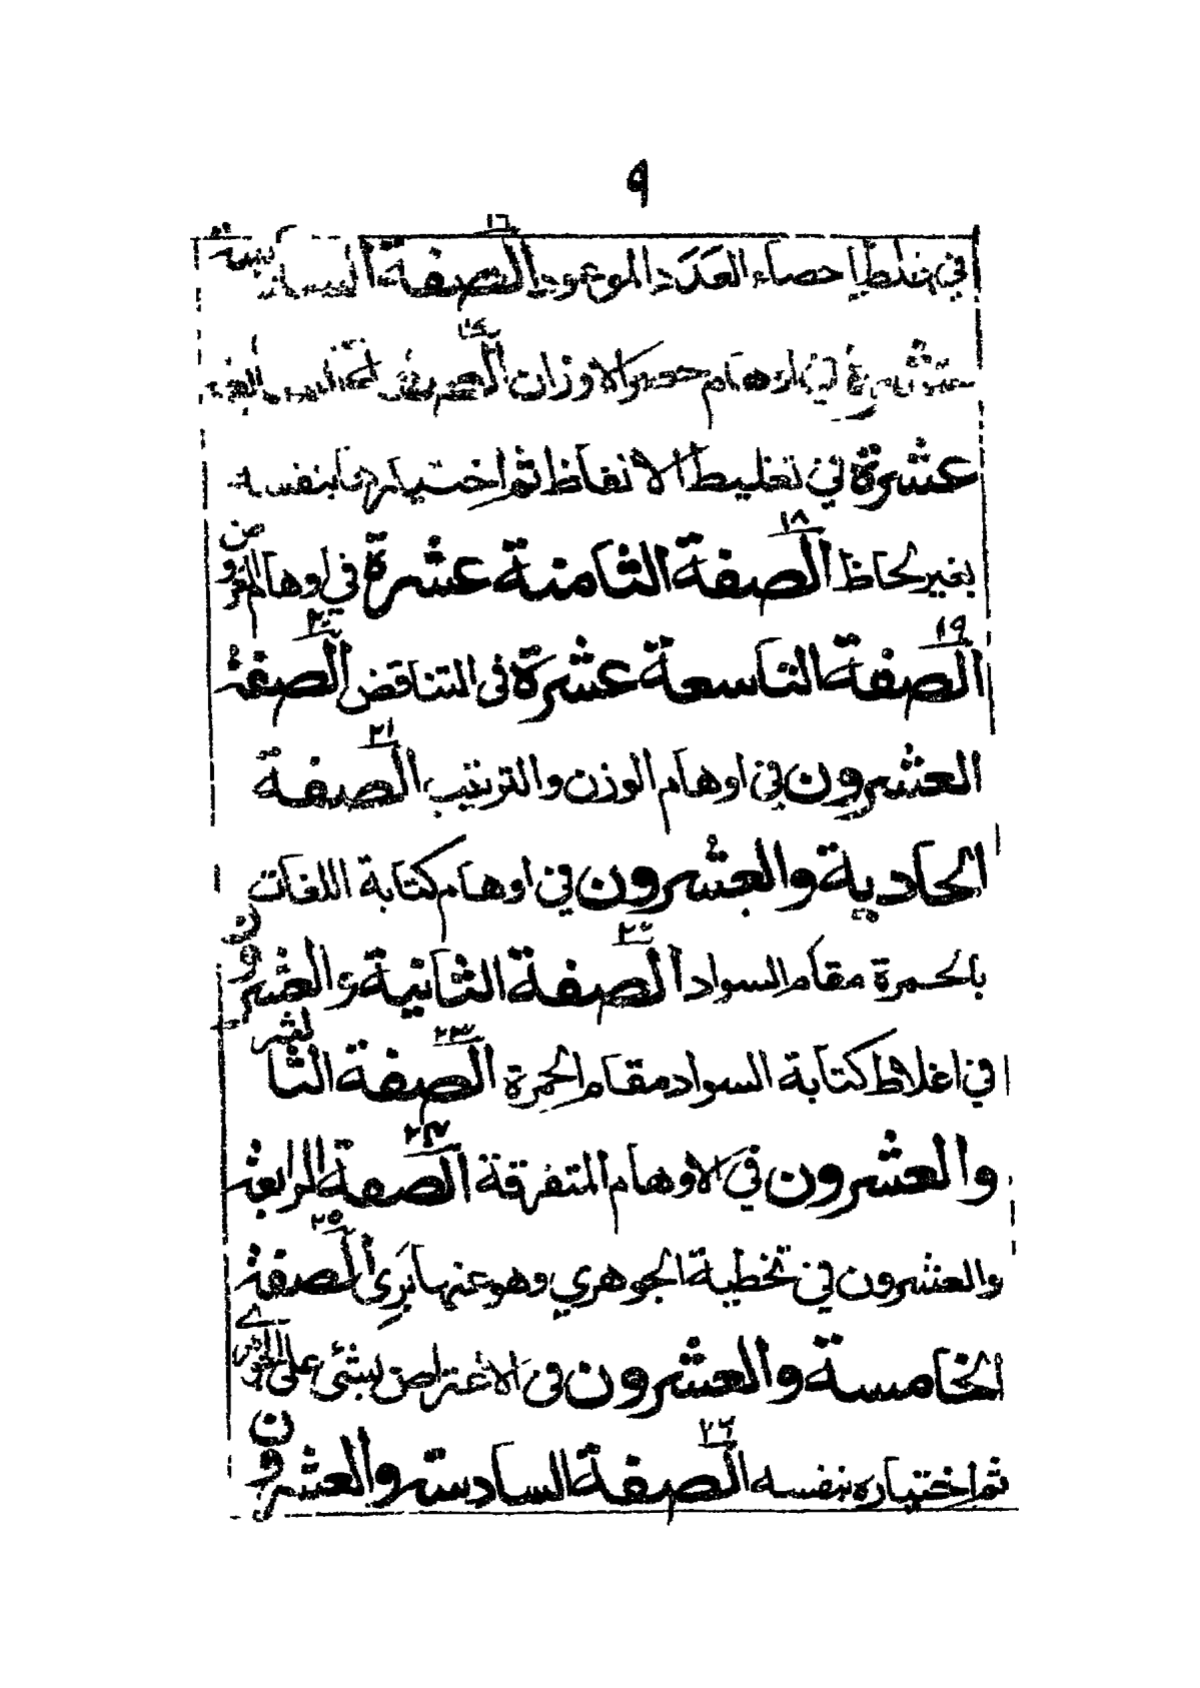 ٩
١٦
في غلط إحصاء العَدَد الموعود الصفة السادسة
١٧
عشرة في اوهام حصر الاوزان الصفة السابعة
عشرة في تغليط الالفاظ ثم اختيارها بنفسه
١٨
بغير لحاظ الصفة الثامنة عشرة في اوهام
١٩ ٢٠
الصفة التاسعة عشرة في التناقض الصفة
٢١
العشرون في اوهام الوزن والترتيب الصفة
الحادية والعشرون في اوهام كتابة اللغات
٢٢
بالحمرة مقام السواد الصفة الثانية والعشرون
٢٣
في اغلاط كتابة السواد مقام الحمرة الصفة الثالثة
٢٤
والعشرون في الاوهام المتفرقة الصفة الرابعة
٢٥
والعشرون في تخطية الجوهري وهو عنها بَرِى الصفة
الخامسة والعشرون في الاعتراض بشئ على الجوهرى
٢٦
ثم اختياره بنفسه الصفة السادسة والعشرون